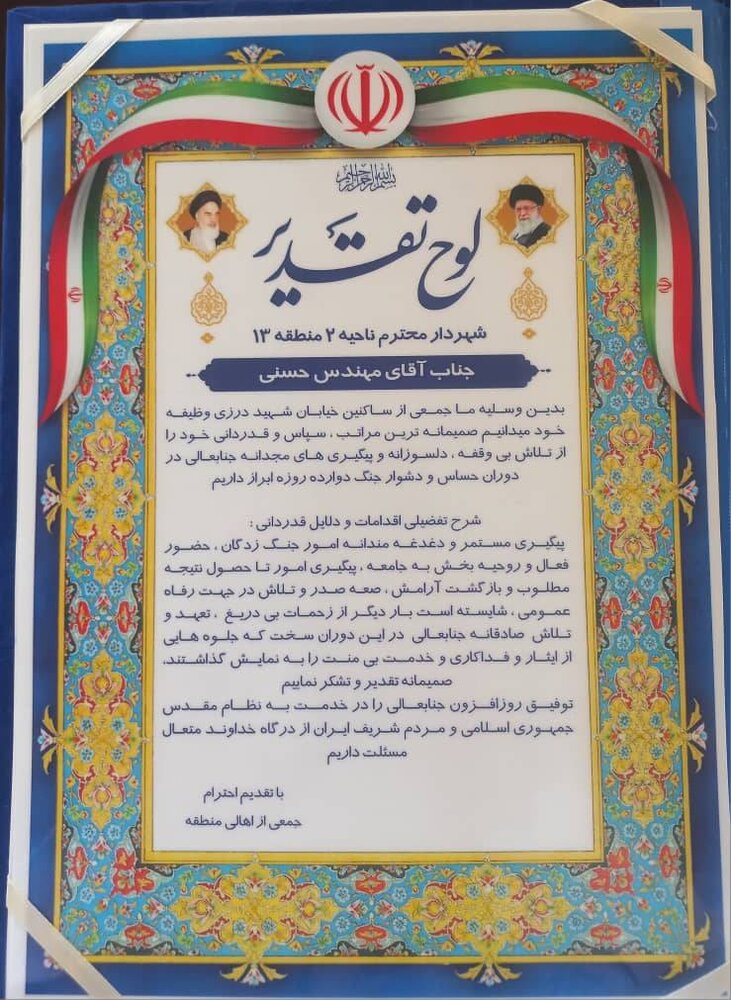 بسم الله الرحمن الرحیم
لوح تقدیر
شهردار محترم ناحیه ۲ منطقه ۱۳
جناب آقای مهندس حسنی
بدین وسلیه ما جمعی از ساکنین خیابان شهید درزی وظیفه
خود میدانیم صمیمانه ترین مراتب ، سپاس و قدردانی خود را
از تلاش بی وقفه ، دلسوزانه و پیگیری های مجدانه جنابعالی در
دوران حساس و دشوار جنگ دوازده روزه ابراز داریم
شرح تفضیلی اقدامات و دلایل قدردانی :
پیگیری مستمر و دغدغه مندانه امور جنگ زدگان ، حضور
فعال و روحیه بخش به جامعه ، پیگیری امور تا حصول نتیجه
مطلوب و بازگشت آرامش ، صعه صدر و تلاش در جهت رفاه
عمومی ، شایسته است بار دیگر از زحمات بی دریغ ، تعهد و
تلاش صادقانه جنابعالی در این دوران سخت که جلوه هایی
از ایثار و فداکاری و خدمت بی منت را به نمایش گذاشتند،
صمیمانه تقدیر و تشکر نماییم
توفیق روزافزون جنابعالی را در خدمت به نظام مقدس
جمهوری اسلامی و مردم شریف ایران از درگاه خداوند متعال
مسئلت داریم
با تقدیم احترام
جمعی از اهالی منطقه